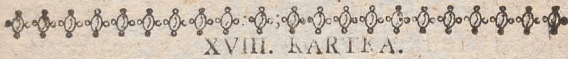 XVIII. KARTKA.